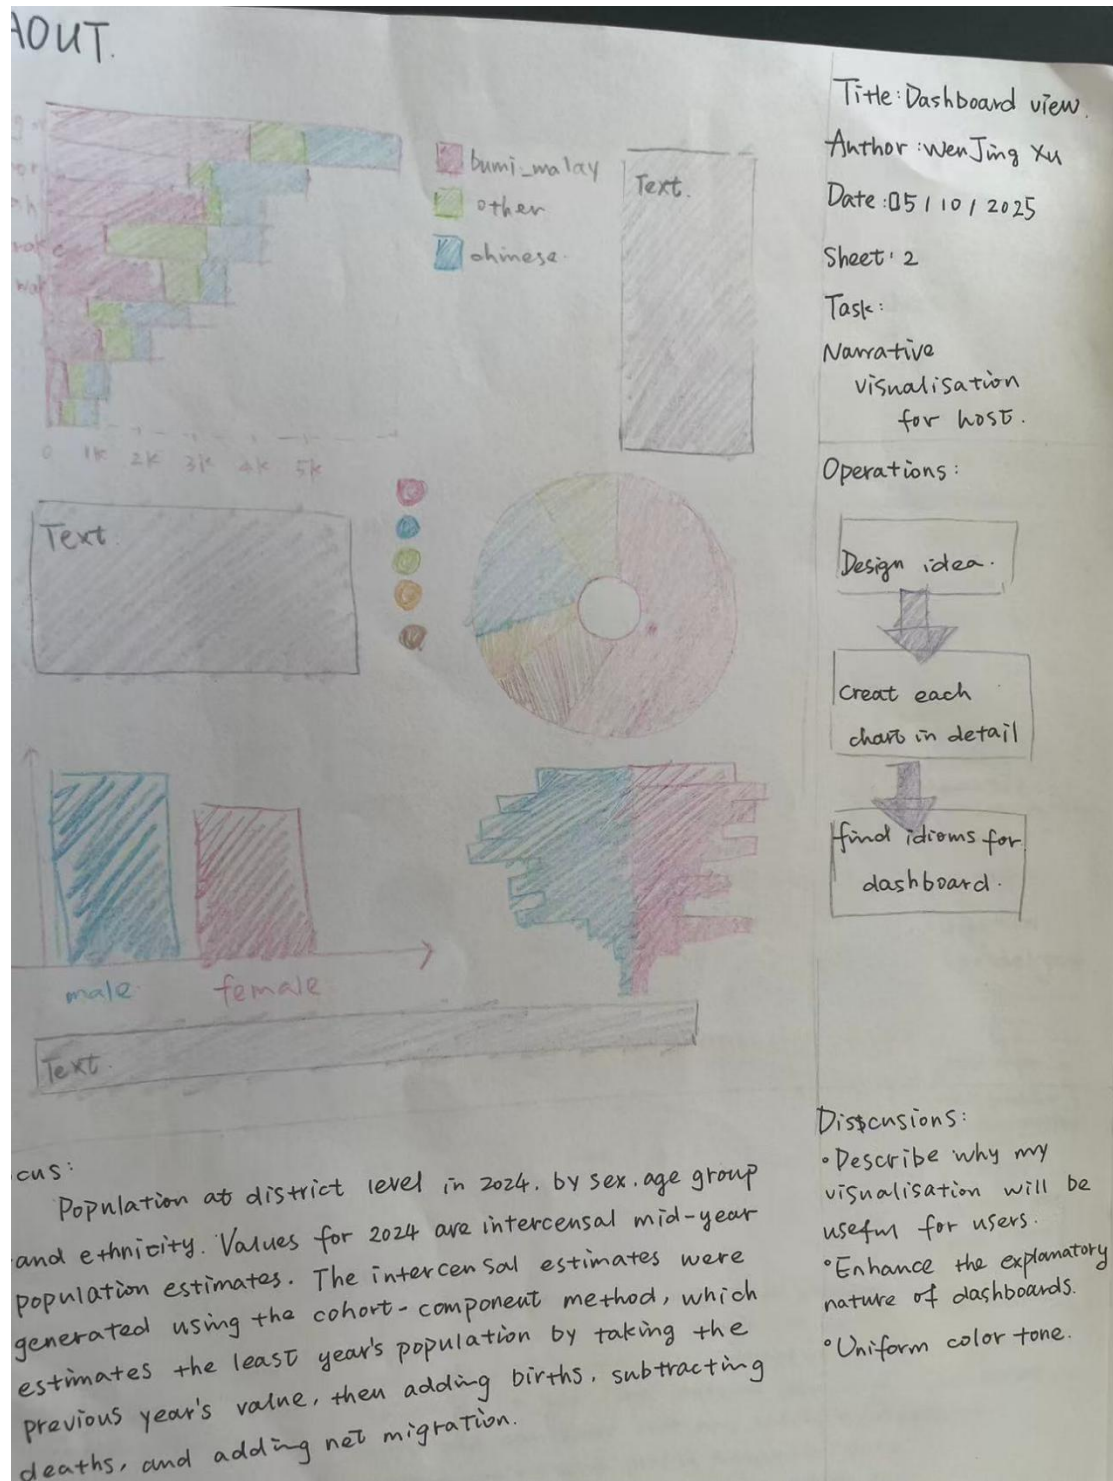 AOUT.
bumi_malay
other
chinese.
0 1k 2k 3k 4k 5k
Text.
Text.
male
female
Text.
cus:
Population at district level in 2024. by sex. age group
and ethnicity. Values for 2024 are intercensal mid-year
population estimates. The intercensal estimates were
generated using the cohort-component method, which
estimates the least year's population by taking the
previous year's value, then adding births, subtracting
deaths, and adding net migration.
Title: Dashboard view.
Author: WenJing Xu
Date: 05/10/2025
Sheet: 2
Task:
Narrative
visualisation
for host.
Operations:
Design idea.
creat each
chart in detail
find idioms for
dashboard.
Disscusions:
•Describe why my
visualisation will be
useful for users.
•Enhance the explanatory
nature of dashboards.
•Uniform color tone.